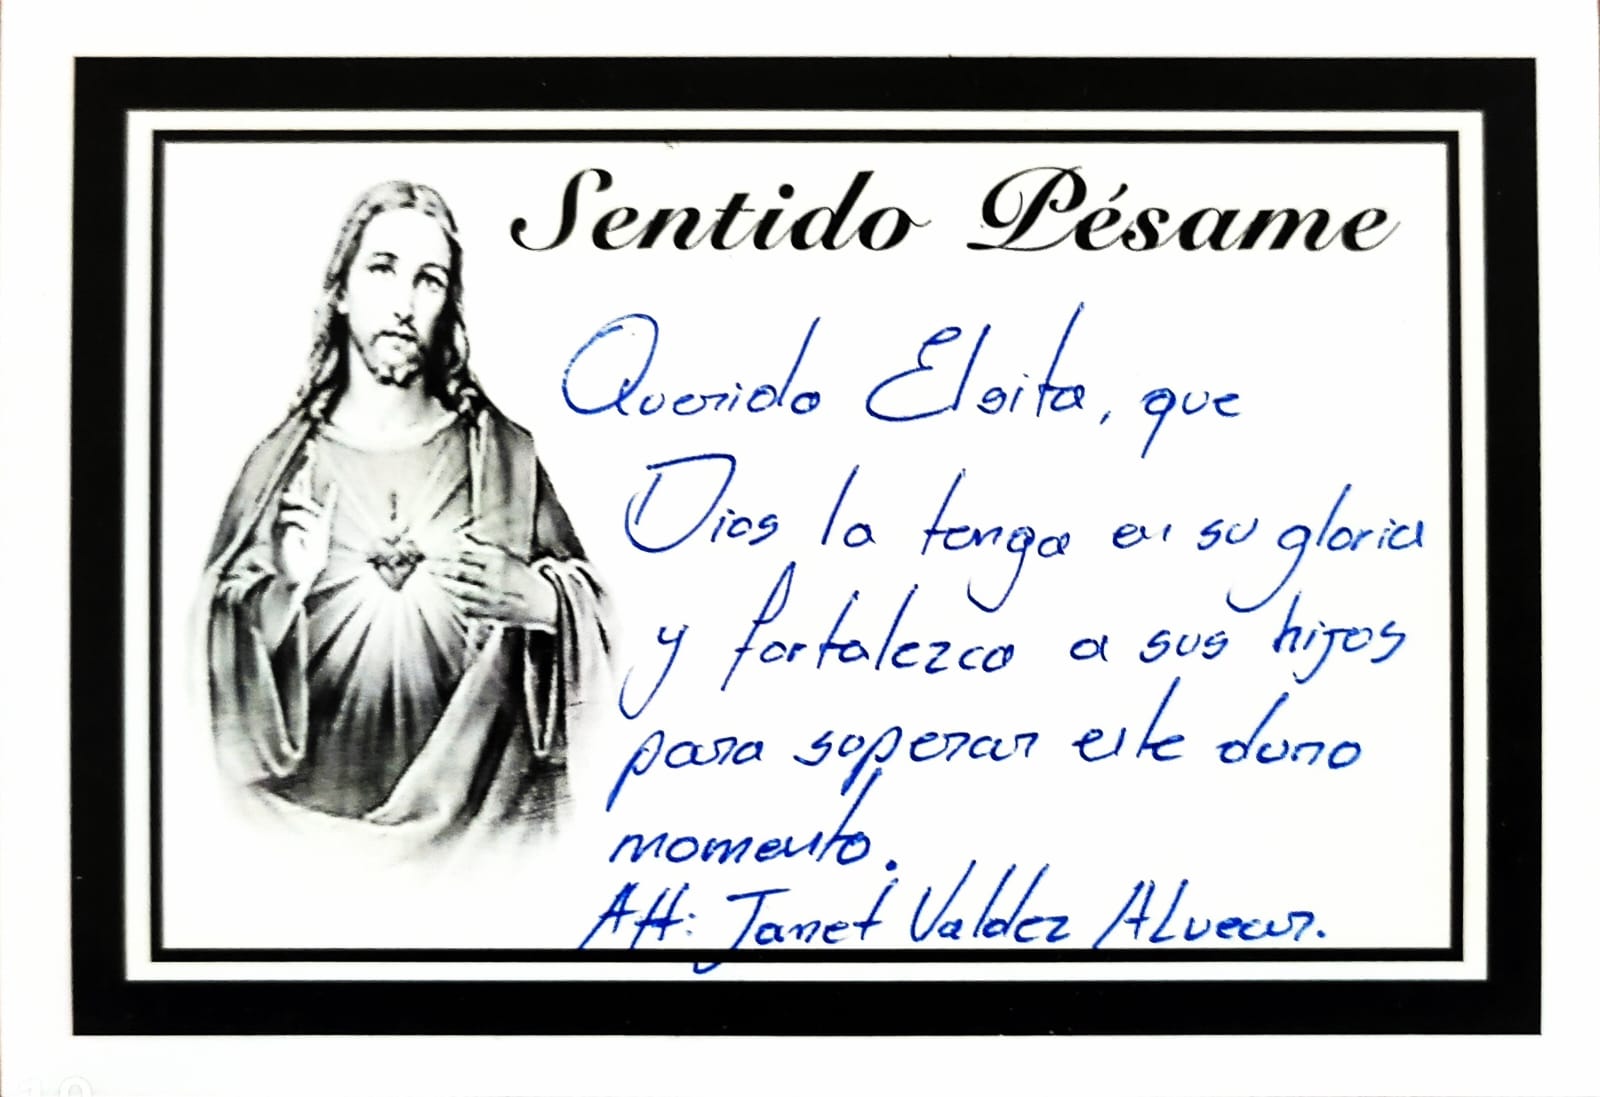 Sentido Pésame
Querida Elsita, que
Dios la tenga en su gloria
y fortalezca a sus hijos
para superar este duro
momento.
Att: Janet Valdez